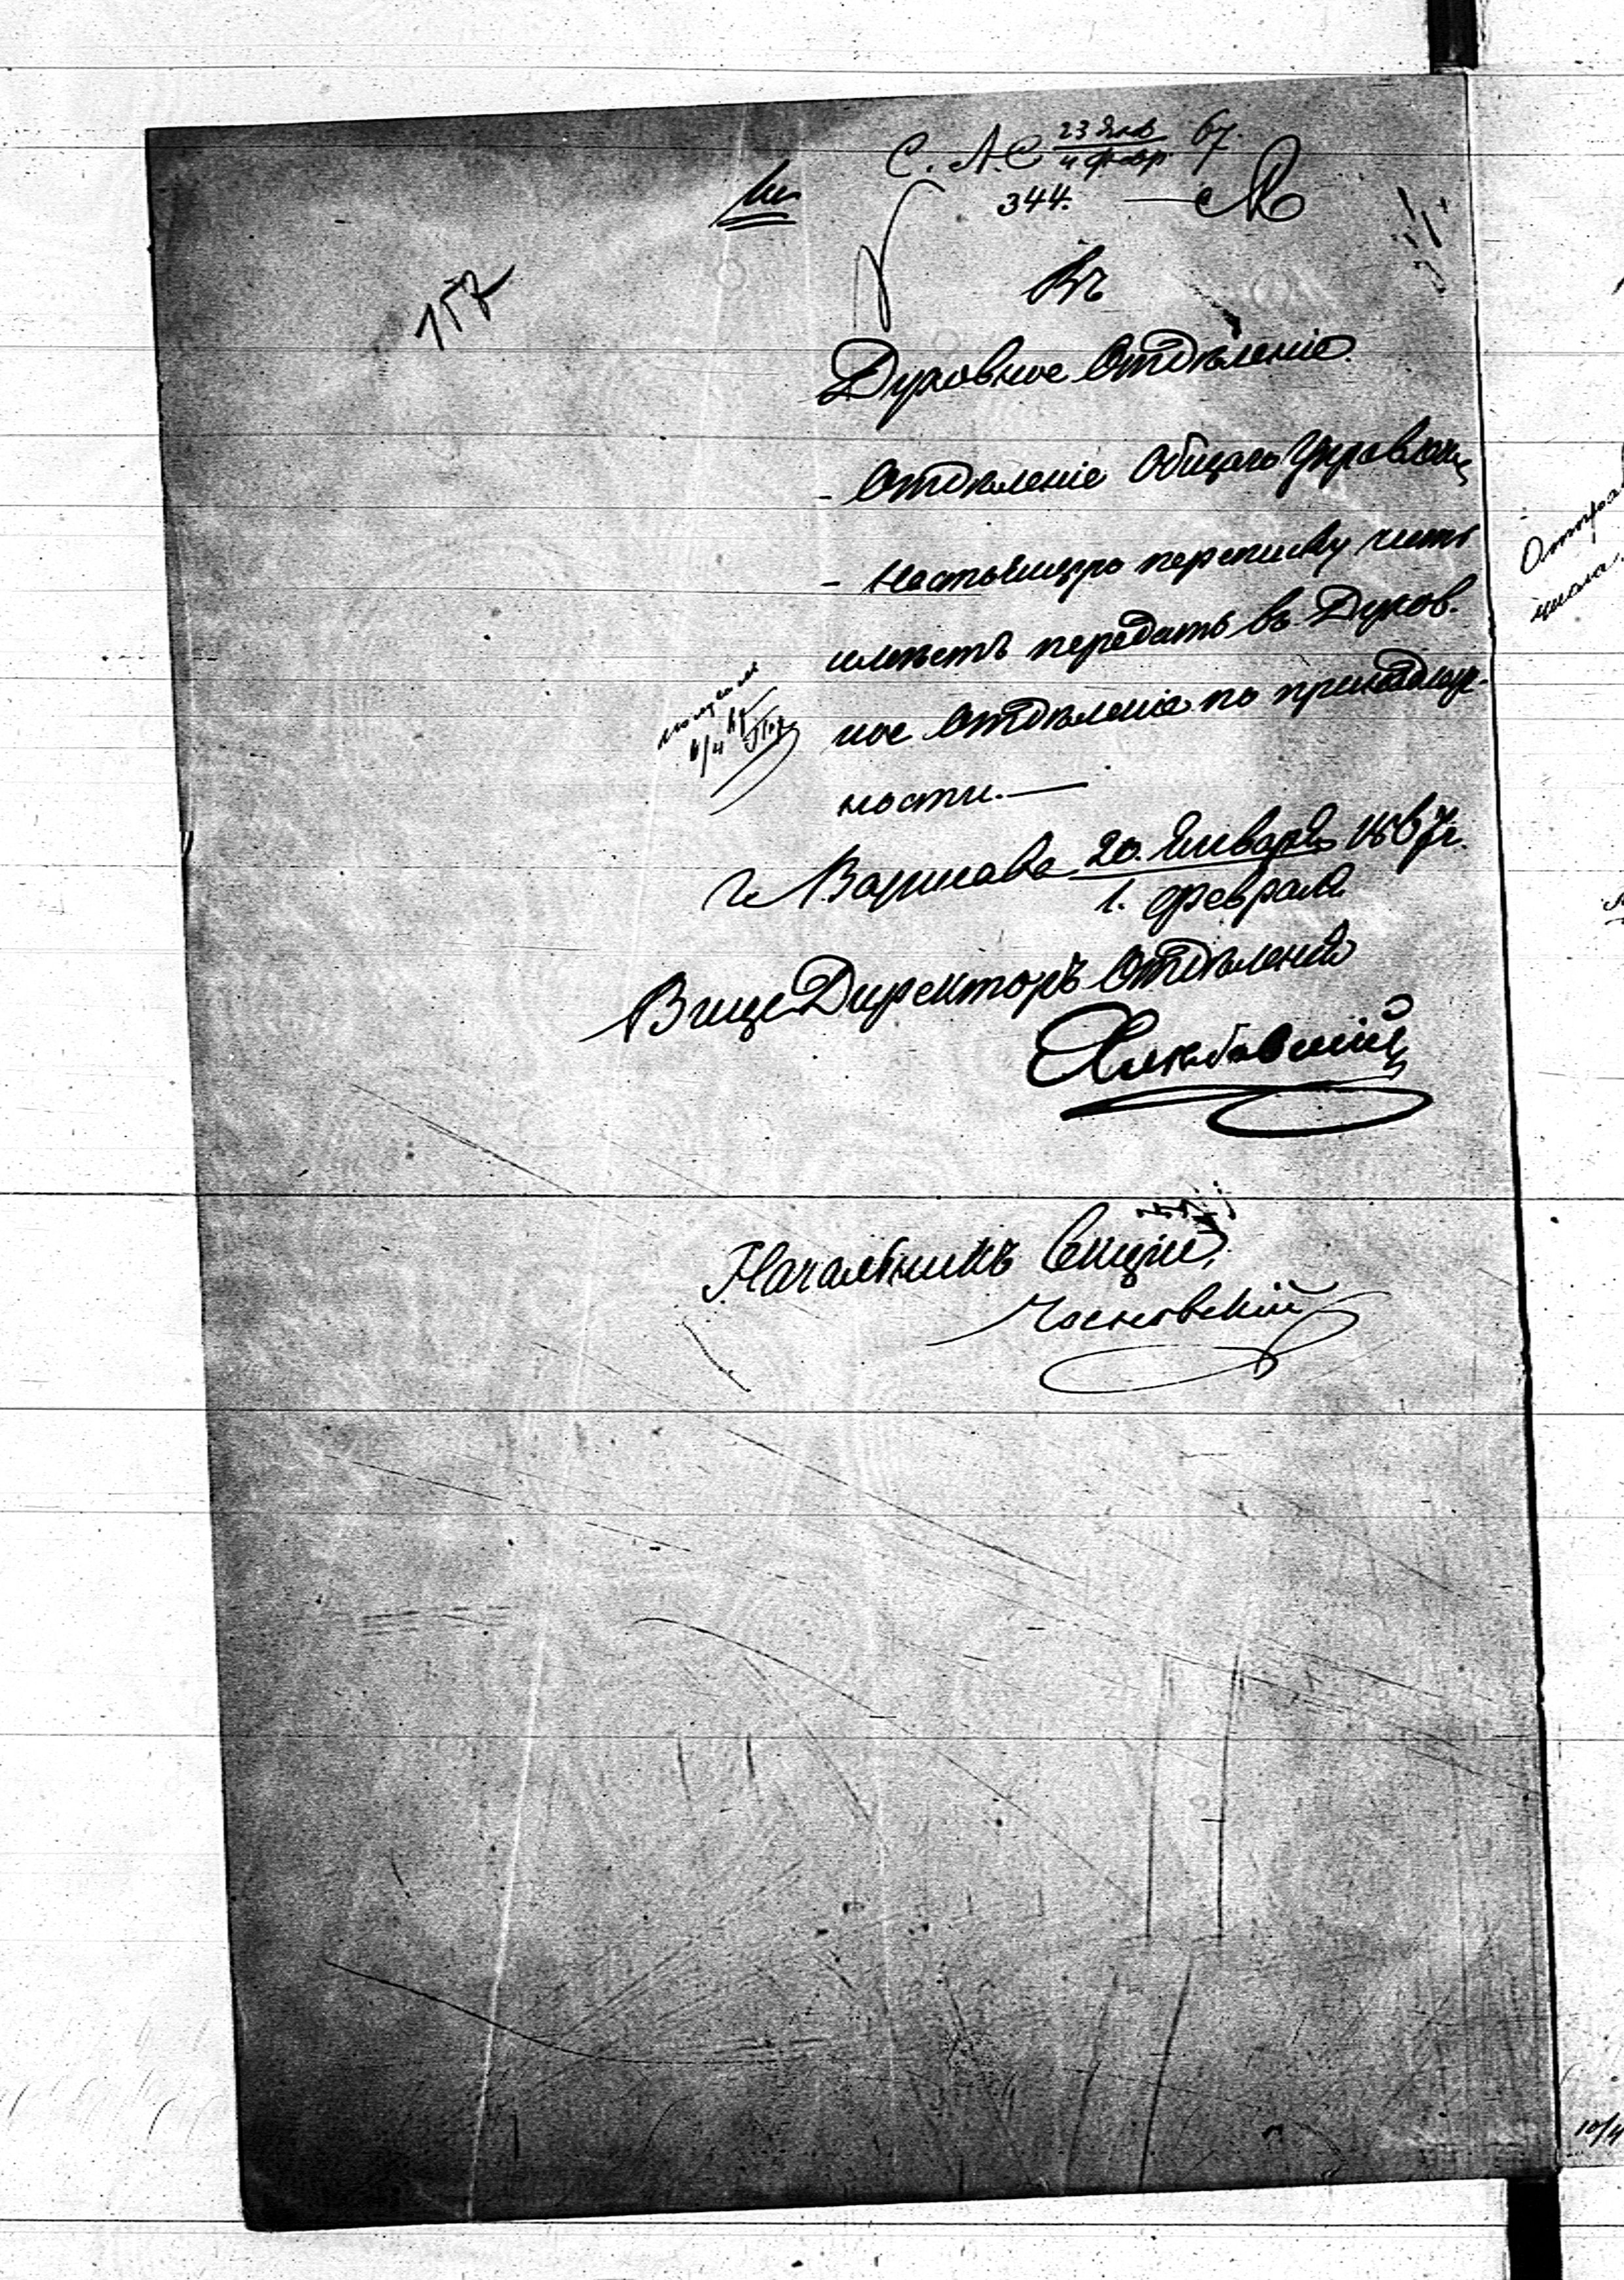 С. А. С 23 Янв 67.
4 Февр
344.
157
Въ
Духовное Отдѣленіе.
Отдѣленіе Общаго Управлен
настоящую переписку честь
имѣетъ передать въ Духов.
ное Отдѣленіе по принадлеж-
ности.
г. Варшава 20. Января 1867 г.
1. Февраля
Вице Директоръ Отдѣленія
Начальникъ Секціи,